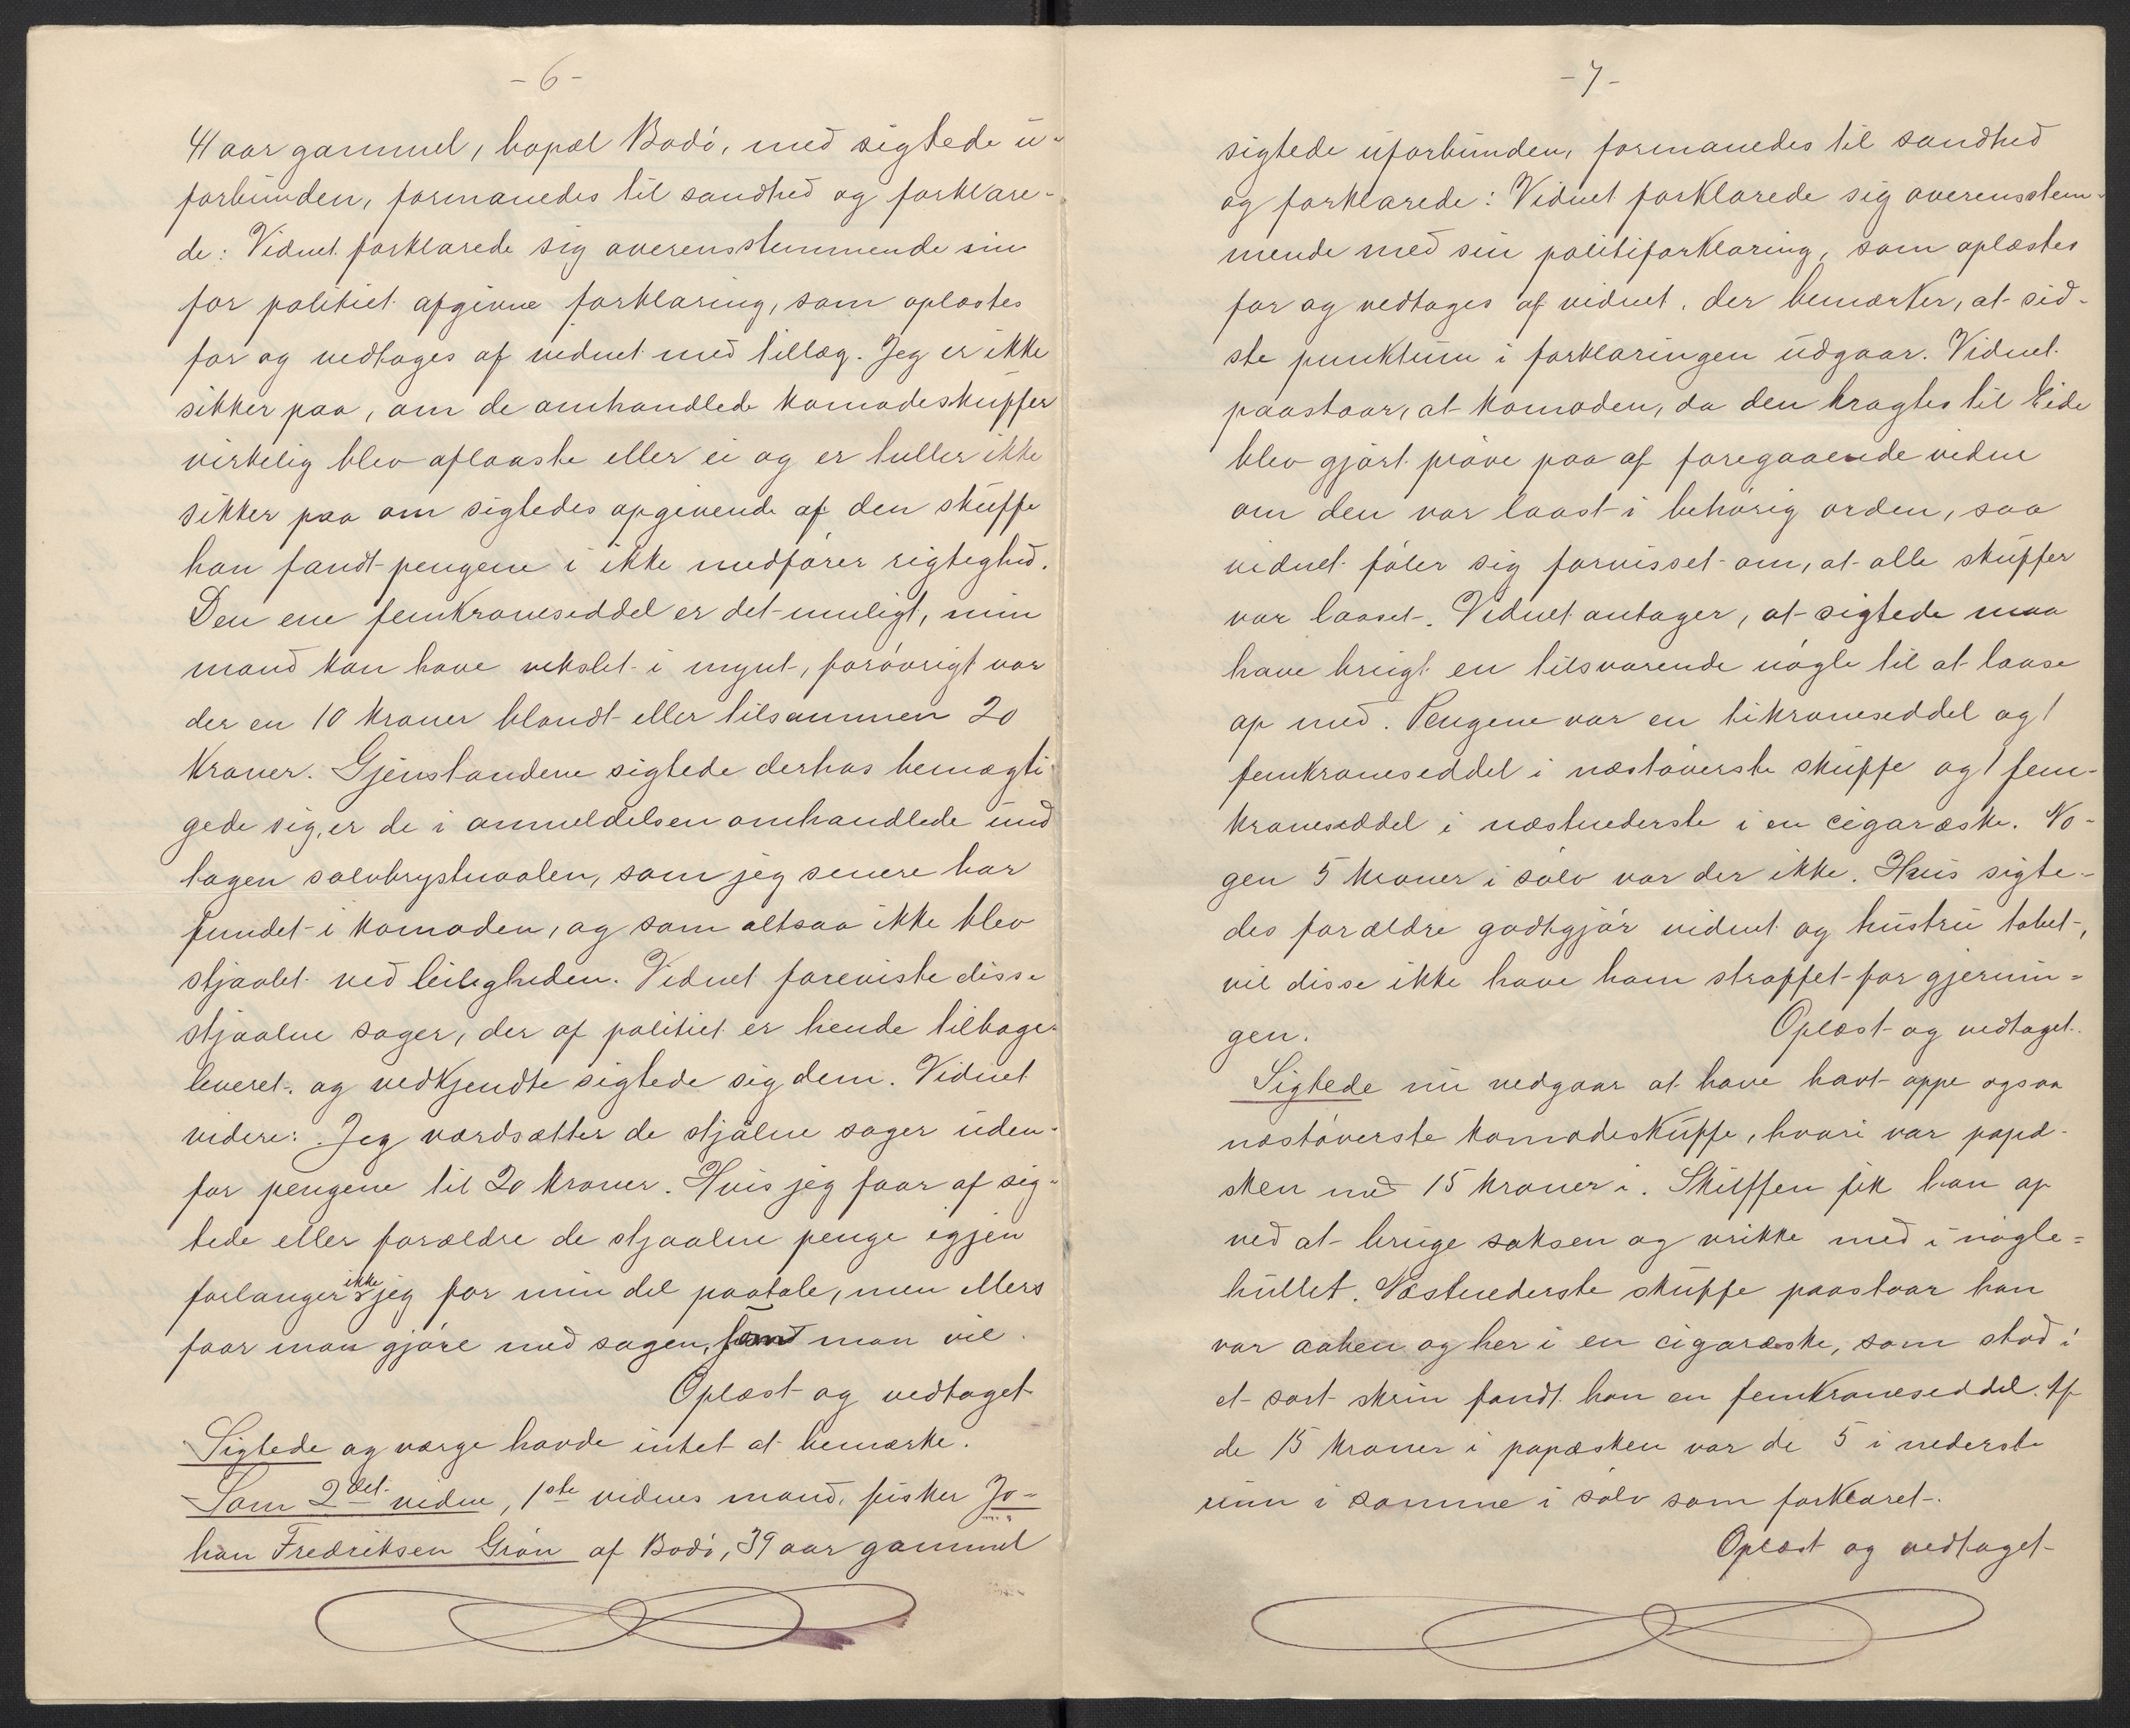 - 6 -
41 aar gammel, bopæl Bodö, med sigtede u-
forbunden, formanedes til sandhed og forklare-
de: Vidnet forklarede sig overensstemmende sin
for politiet afgivne forklaring, som oplæstes
for og vedtoges af vidnet med tillæg. Jeg er ikke
sikker paa, om de omhandlede komodeskuffer
virkelig blev aflaaste eller ei og er heller ikke
sikker paa om sigtedes opgivende af den skuffe
han fandt pengene i ikke medförer rigtighed.
Den ene femkroneseddel er det muligt, min
mand kan have vekslet i mynt, forövrigt var
der en 10 kroner blandt eller tilsammen 20
kroner. Gjenstandene sigtede derhos bemægti-
gede sig, er de i anmeldelsen omhandlede und
tagen sölvbrystnaalen, som jeg senere har
fundet i komoden, og som altsaa ikke blev
stjaalet ved leiligheden. Vidnet foreviste disse
stjaalne sager, der af politiet er hende tilbage-
leveret, og vedkjendte sigtede sig dem. Vidnet
videre: Jeg værdsætter de stjålne sager uden-
for pengene til 20 kroner. Hvis jeg faar af sig-
tede eller forældre de stjaalne penge igjen
forlanger ikke jeg for min del paatale, men ellers
faar man gjöre med sagen, som man vil.
Oplæst og vedtaget
Sigtede og værge havde intet at bemærke.
Som 2det vidne, 1ste vidnes mand, fisker Jo-
han Fredriksen Grön af Bodö, 39 aar gammel
- 7 -
sigtede uforbunden, formanedes til sandhed
og forklarede: Vidnet forklarede sig overensstem-
mende med sin politiforklaring, som oplæstes
for og vedtoges af vidnet, der bemærker, at sid-
ste punktum i forklaringen udgaar. Vidnet
paastaar, at komoden, da den bragtes til Eide
blev gjort pröve paa af foregaaende vidne
om den var laast i behörig orden, saa
vidnet föler sig forvisset om, at alle skuffer
var laaset. Vidnet antager, at sigtede maa
have brugt en tilsvarende nögle til at laase
op med. Pengene var en tikroneseddel og 1
femkroneseddel i næstöverste skuffe og 1 fem-
kroneseddel i næstnederste i en cigaræske. No-
gen 5 kroner i sölv var der ikke. Hvis sigte-
des forældre godtgjör vidnet og hustru tabet,
vil disse ikke have ham straffet for gjernin-
gen.
Oplæst og vedtaget.
Sigtede nu vedgaar at have havt oppe ogsaa
næstöverste komodeskuffe, hvori var papæ-
sken med 15 kroner i. Skuffen fik han op
ved at bruge saksen og vrikke med i nögle-
hullet. Næstnederste skuffe paastaar han
var aaben og her i en cigaræske, som stod i
et sort skrin fandt han en femkroneseddel. Af
de 15 kroner i papæsken var de 5 i nederste
rum i samme i sölv som forklaret.
Oplæst og vedtaget